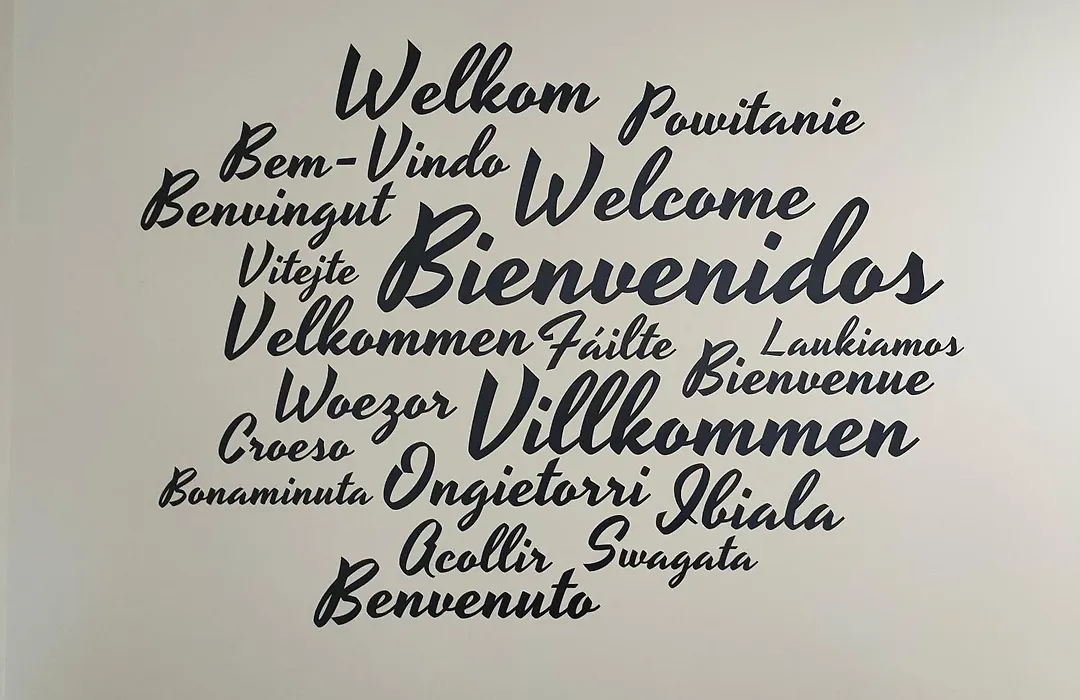 Welkom
Powitanie
Bem-Vindo
Welcome
Benvingut
Bienvenidos
Vitejte
Velkommen
Fáilte
Laukiamos
Bienvenue
Woezor
Villkommen
Croeso
Bonaminuta
Ongietorri
Ibiala
Acollir
Swagata
Benvenuto